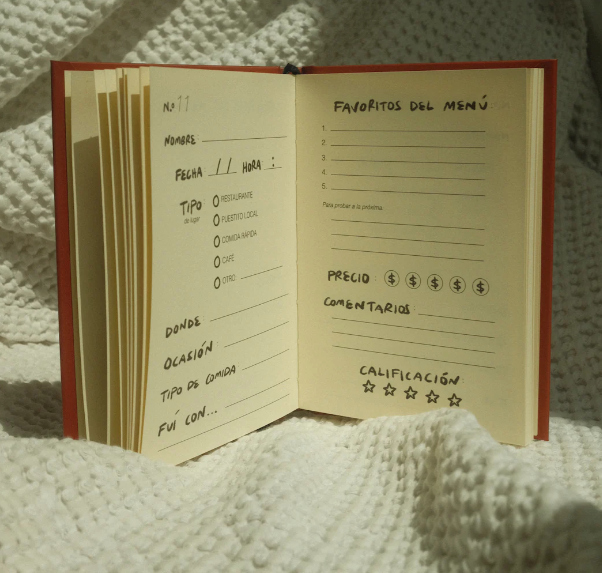 N.º 11
NOMBRE
FECHA // HORA :
TIPO
de lugar
RESTAURANTE
PUESTITO LOCAL
COMIDA RÁPIDA
CAFÉ
OTRO
DONDE
OCASIÓN
TIPO DE COMIDA
FUÍ CON...
FAVORITOS DEL MENÚ
1.
2.
3.
4.
5.
Para probar a la próxima:
PRECIO $ $ $ $ $
COMENTARIOS
CALIFICACIÓN